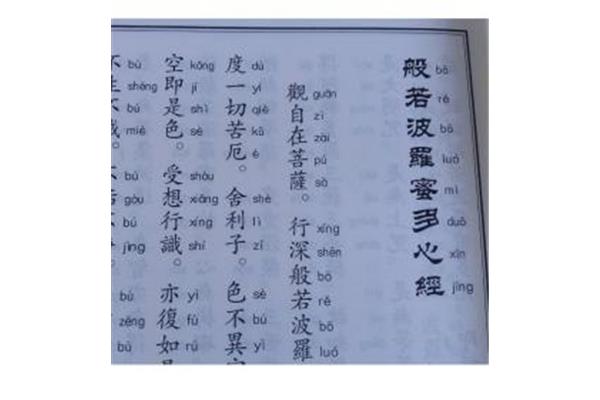 般若波羅蜜多心經
bō rě bō luó mì duō xīn jīng
觀自在菩薩。行深般若波羅
guān zì zài pú sà xíng shēn bō rě bō luó
度一切苦厄。舍利子。色不異
dù yí qiè kǔ è shè lì zǐ sè bú yì
空即是色。受想行識。亦復如是
kōng jí shì sè shòu xiǎng xíng shí yì fù rú
不生不
bù shēng bú miè bú gòu bú jìng bù zēng bù